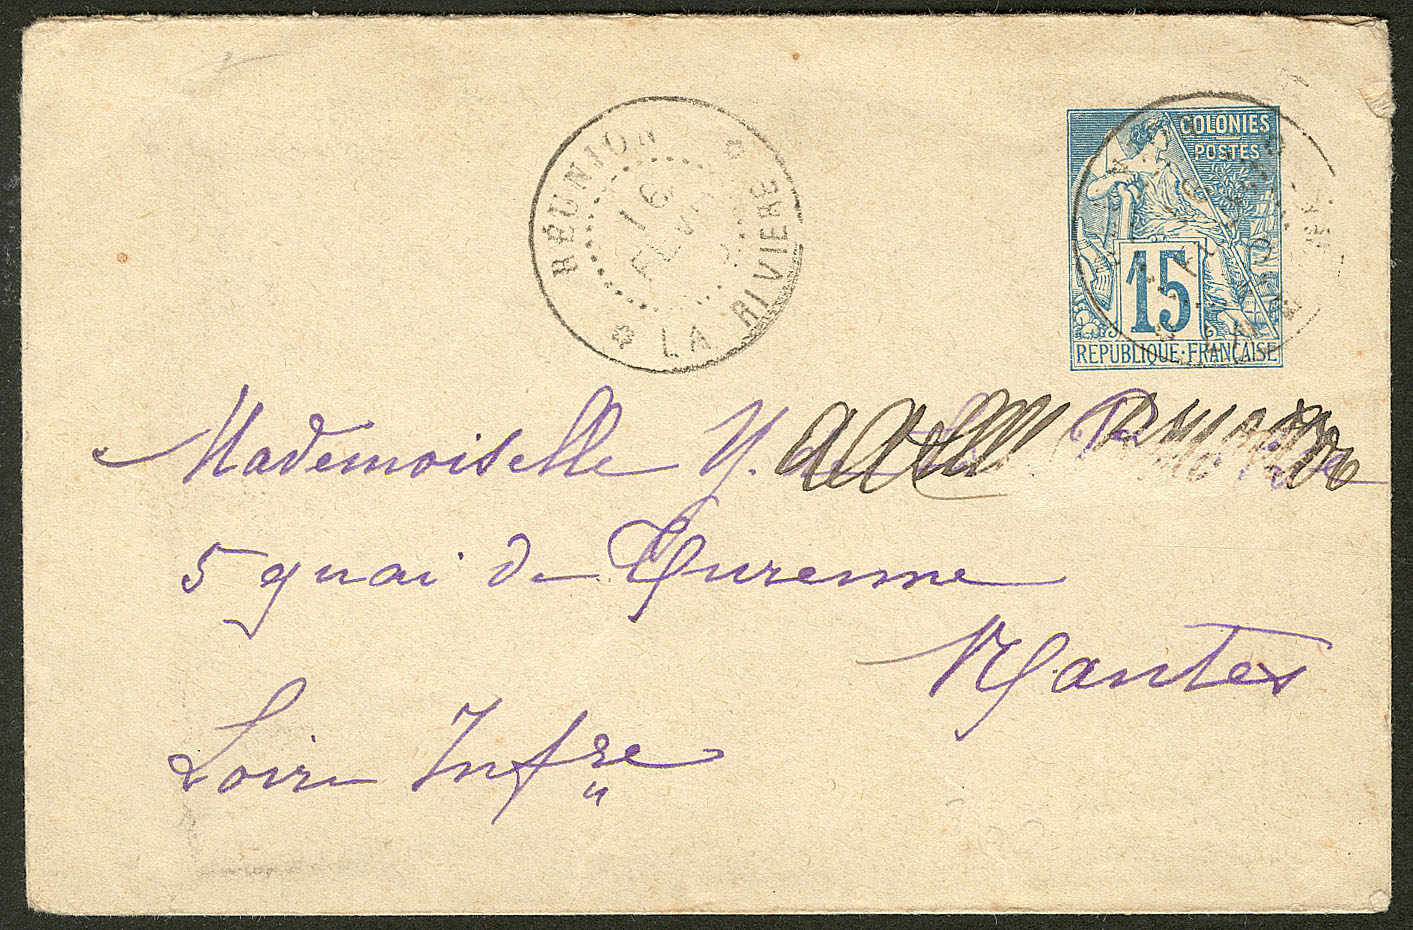 RÉUNION
16
FEVR
LA RIVIERE
COLONIES
POSTES
15
REPUBLIQUE FRANÇAISE
Mademoiselle Y.
5 quai de Turenne
Nantes
Loire Infre